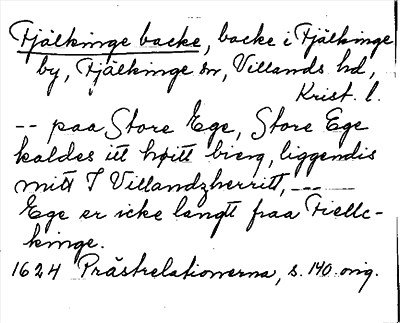 Fjälkinge backe, backe i Fjälkinge
by, Fjälkinge sn, Villands hd,
Krist. l.
-- paa Store Ege, Store Ege
kaldes itt høitt bierg, liggendis
mitt I Villandzherritt, -- --
Ege er icke langtt fraa Fielc-
kinge.
1624 Prästrelationerna, s. 140 orig.